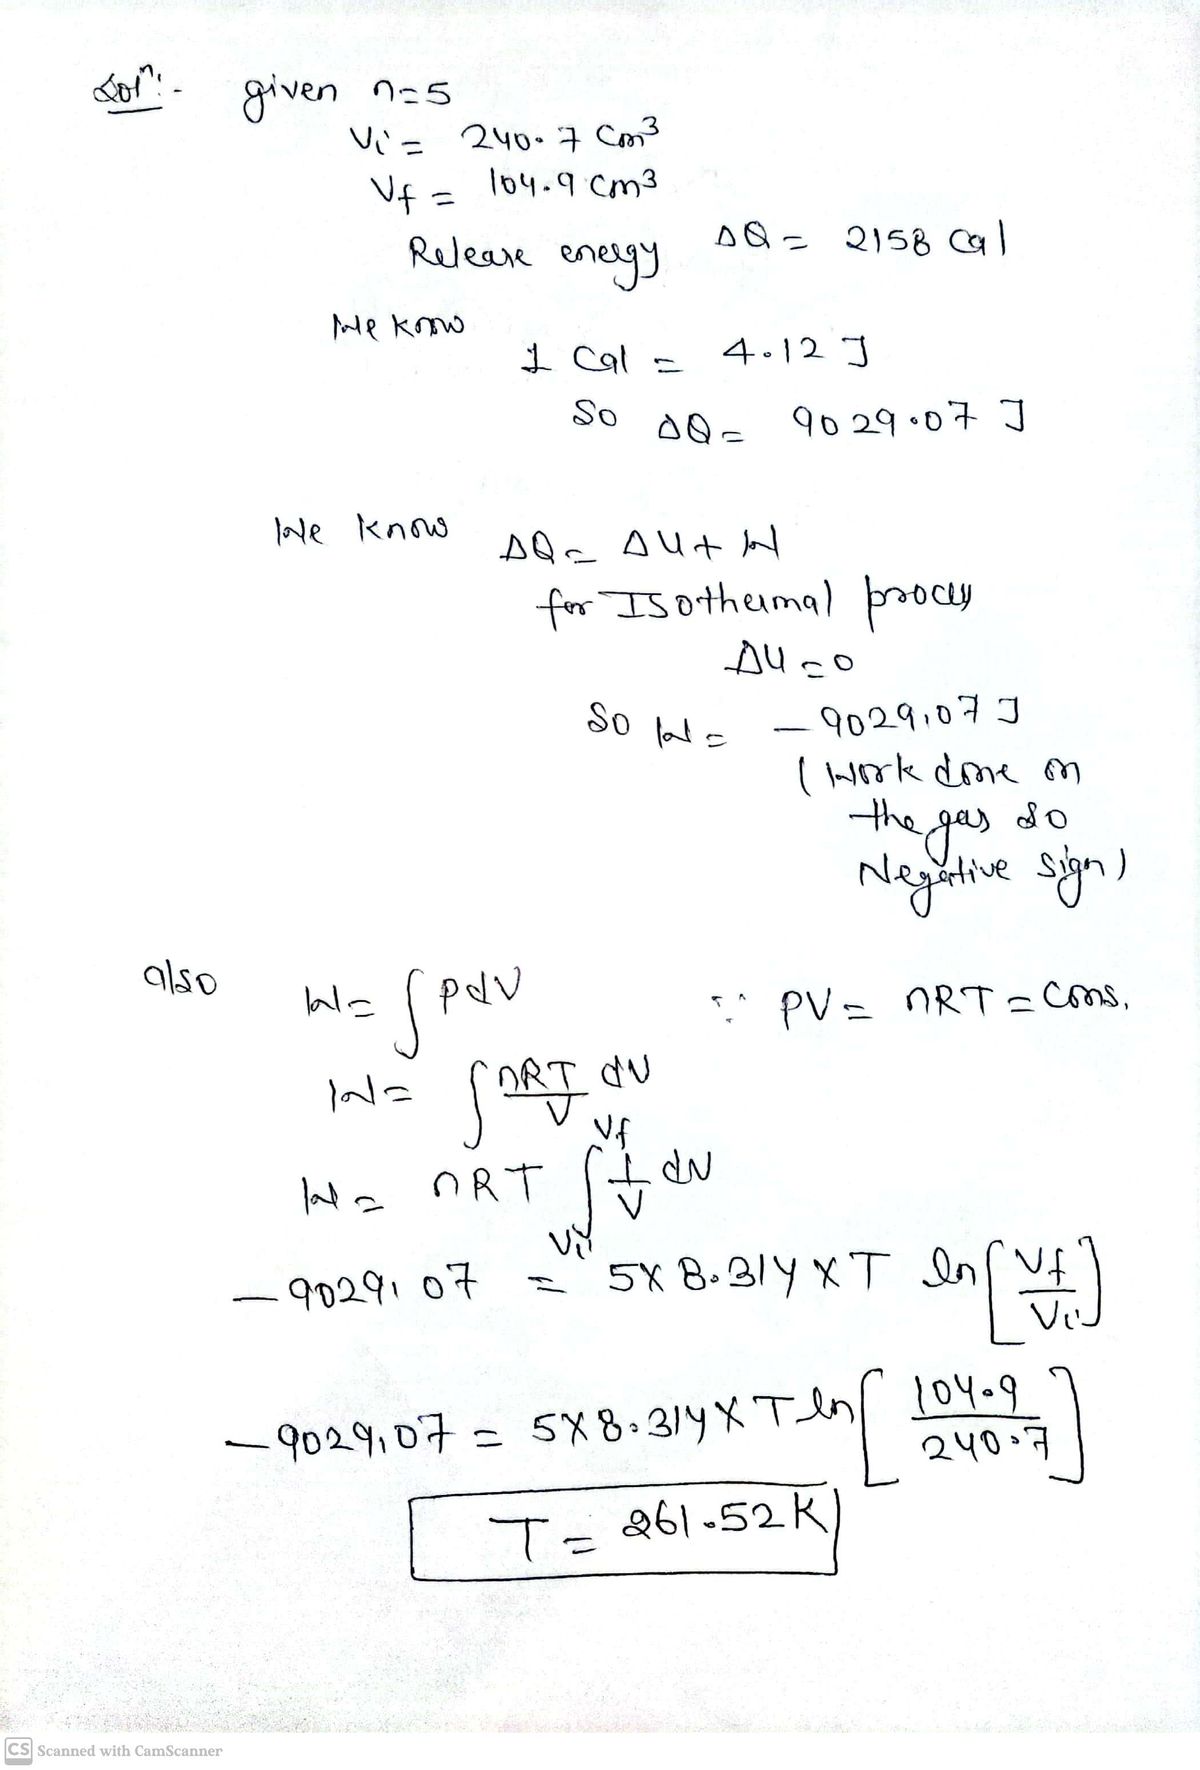 Solⁿ:- given n=5
Vi = 240.7 Cm³
Vf = 104.9 cm³
Release energy ΔQ = 2158 Cal
We know
1 Cal = 4.12 J
So ΔQ = 9029.07 J
We know ΔQ = ΔU + W
for Isothermal process
ΔU = 0
So W = - 9029.07 J
(Work done on
the gas so
Negative sign)
also W = ∫ PdV ∵ PV = nRT = Cons.
W = ∫ nRT/V dV
W = nRT ∫_{Vi}^{Vf} 1/V dV
- 9029.07 = 5 X 8.314 X T ln [Vf/Vi]
- 9029.07 = 5 X 8.314 X T ln [104.9/240.7]
T = 261.52 K
CS Scanned with CamScanner